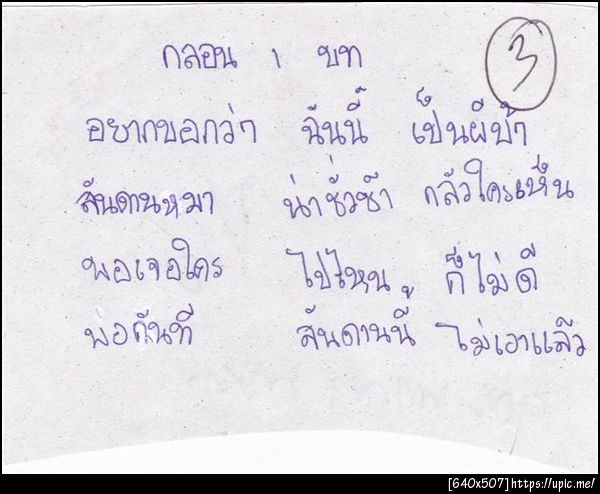 กลอน 1 บท
3
อยากบอกว่า ฉันนี้ เป็นผีบ้า
สันดานหมา น่าชั่วช้า กลัวใครเห็น
พอเจอใคร ไปไหน ก็ไม่ดี
พอกันที สันดานนี้ ไม่เอาแล้ว
[640x507]https://upic.me/